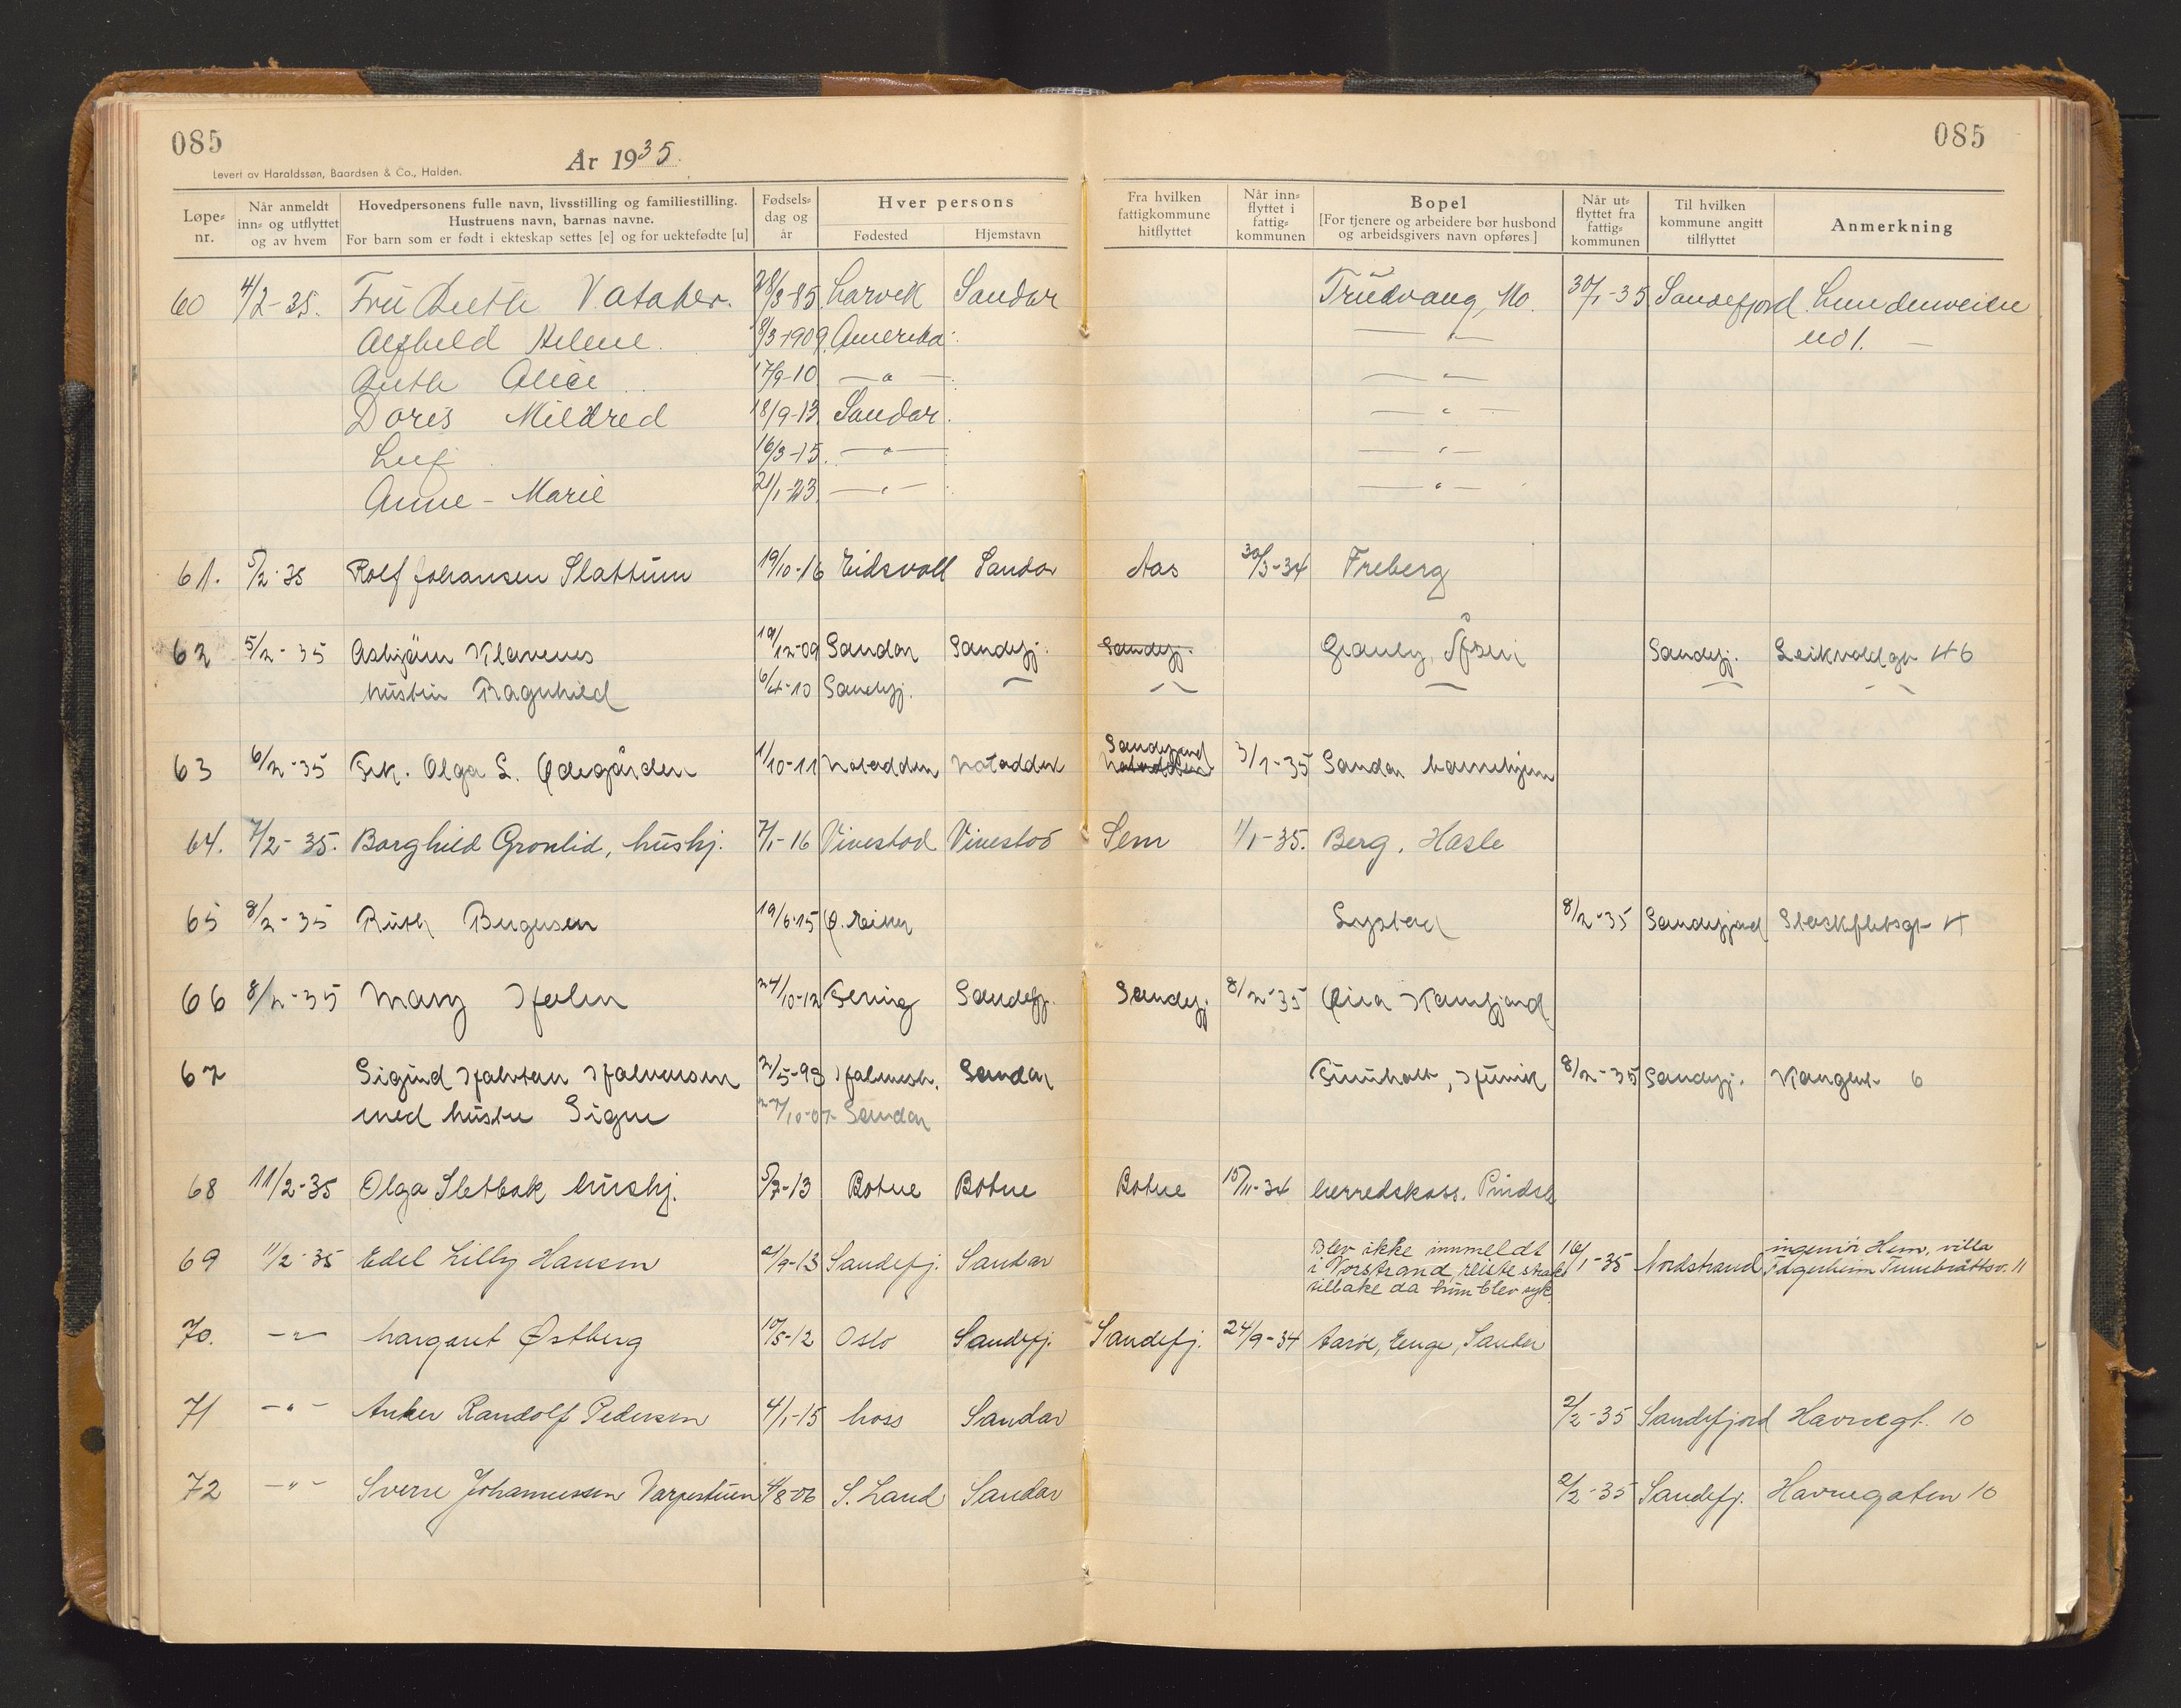 085
085
År 1935.
Levert av Haraldssøn, Baardsen & Co., Halden.
Løpe-nr.
Når anmeldt inn- og utflyttet og av hvem
Hovedpersonens fulle navn, livsstilling og familiestilling.
Hustruens navn, barnas navne.
For barn som er født i ekteskap settes [e] og for uektefødte [u]
Fødsels-dag og år
Hver persons
Fødested
Hjemstavn
Fra hvilken fattigkommune hitflyttet
Når inn-flyttet i fattig-kommunen
Bopel
[For tjenere og arbeidere bør husbond og arbeidsgivers navn opføres]
Når ut-flyttet fra fattig-kommunen
Til hvilken kommune angitt tilflyttet
Anmerkning
60 4/2-35. Fru Vataker. 28/3-85 Larvik Sandar Trudvang, Mo. 30/1-35 Sandefjord Lundenveien
Alfhild Helene. 8/3-1909. Amerika — " — no 1. —
Alice 17/9-10 — " — — " —
Doris Mildred 18/9-13 Sandar. — " —
Leif 16/3-15. — " — — " —
Anne-Marie 21/1-23 — " — — " —
61. 5/2-35 Rolf Johansen Slattum 19/10-16 Eidsvoll Sandar Aas 30/3-34 Freberg
62 5/2-35 Asbjørn Klavenes 19/12-09 Sandar Sandefj. Sandefj. Granly, Sandefj. 46
hustru Ragnhild 6/4-10 Sandefj. — — — — —
63 6/2-35 Frk. Olga L. Ødegården 1/10-11 Notodden Notodden Sandefjord Notodden 3/1-35 Sandar barnehjem
64. 7/2-35. Borghild Gronlid, hushj. 7/1-16 Vivestad Vivestad Sem 1/1-35. Berg, Hasle
65 8/2-35 Ruth 19/6-15 Lystad 8/2-35 Sandefjord 4
66 8/2-35 Mary Holm 24/10-12 Sandefj. Sandefj. 8/2-35 Kamfjord
67 Sigurd Halvorsen 2/5-93 Sandar 8/2-35 Sandefj. 6
med hustru Signe 27/10-07 Sandar
68 11/2-35 Olga Sletbak hushj. 5/7-13 Botne Botne Botne 15/11-34 herredskass. Pindsle
69 11/2-35 Edel Lilly Hansen 21/9-13 Sandefj. Sandar Blev ikke innmeldt i Norstrand, reiste straks tilbake da hun blev syk. 16/1-35 Nordstrand ingeniør Hem, villa 11
70. — " — Margaret Østberg 10/5-12 Oslo Sandefj. Sandefj. 24/9-34 Aarøe, Enge, Sandar
71 — " — Anker Randolf Pedersen 4/1-15 Moss Sandar 2/2-35 Sandefjord Havnegt. 10
72 — " — Sverre Johannessen Varpestuen 4/8-06 S. Land Sandar 2/2-35 Sandefj. Havnegaten 10